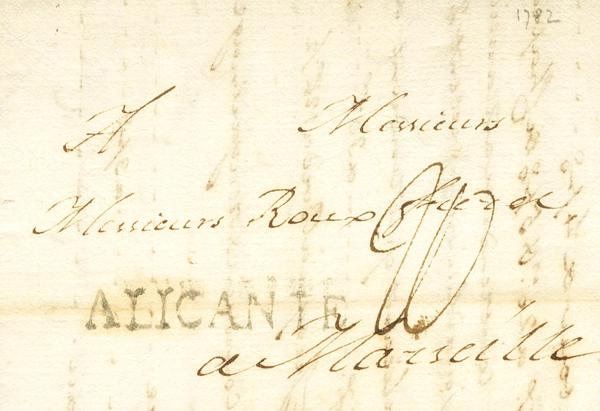 1782
A Messieurs
Messieurs Roux
ALICANTE
a Marseille